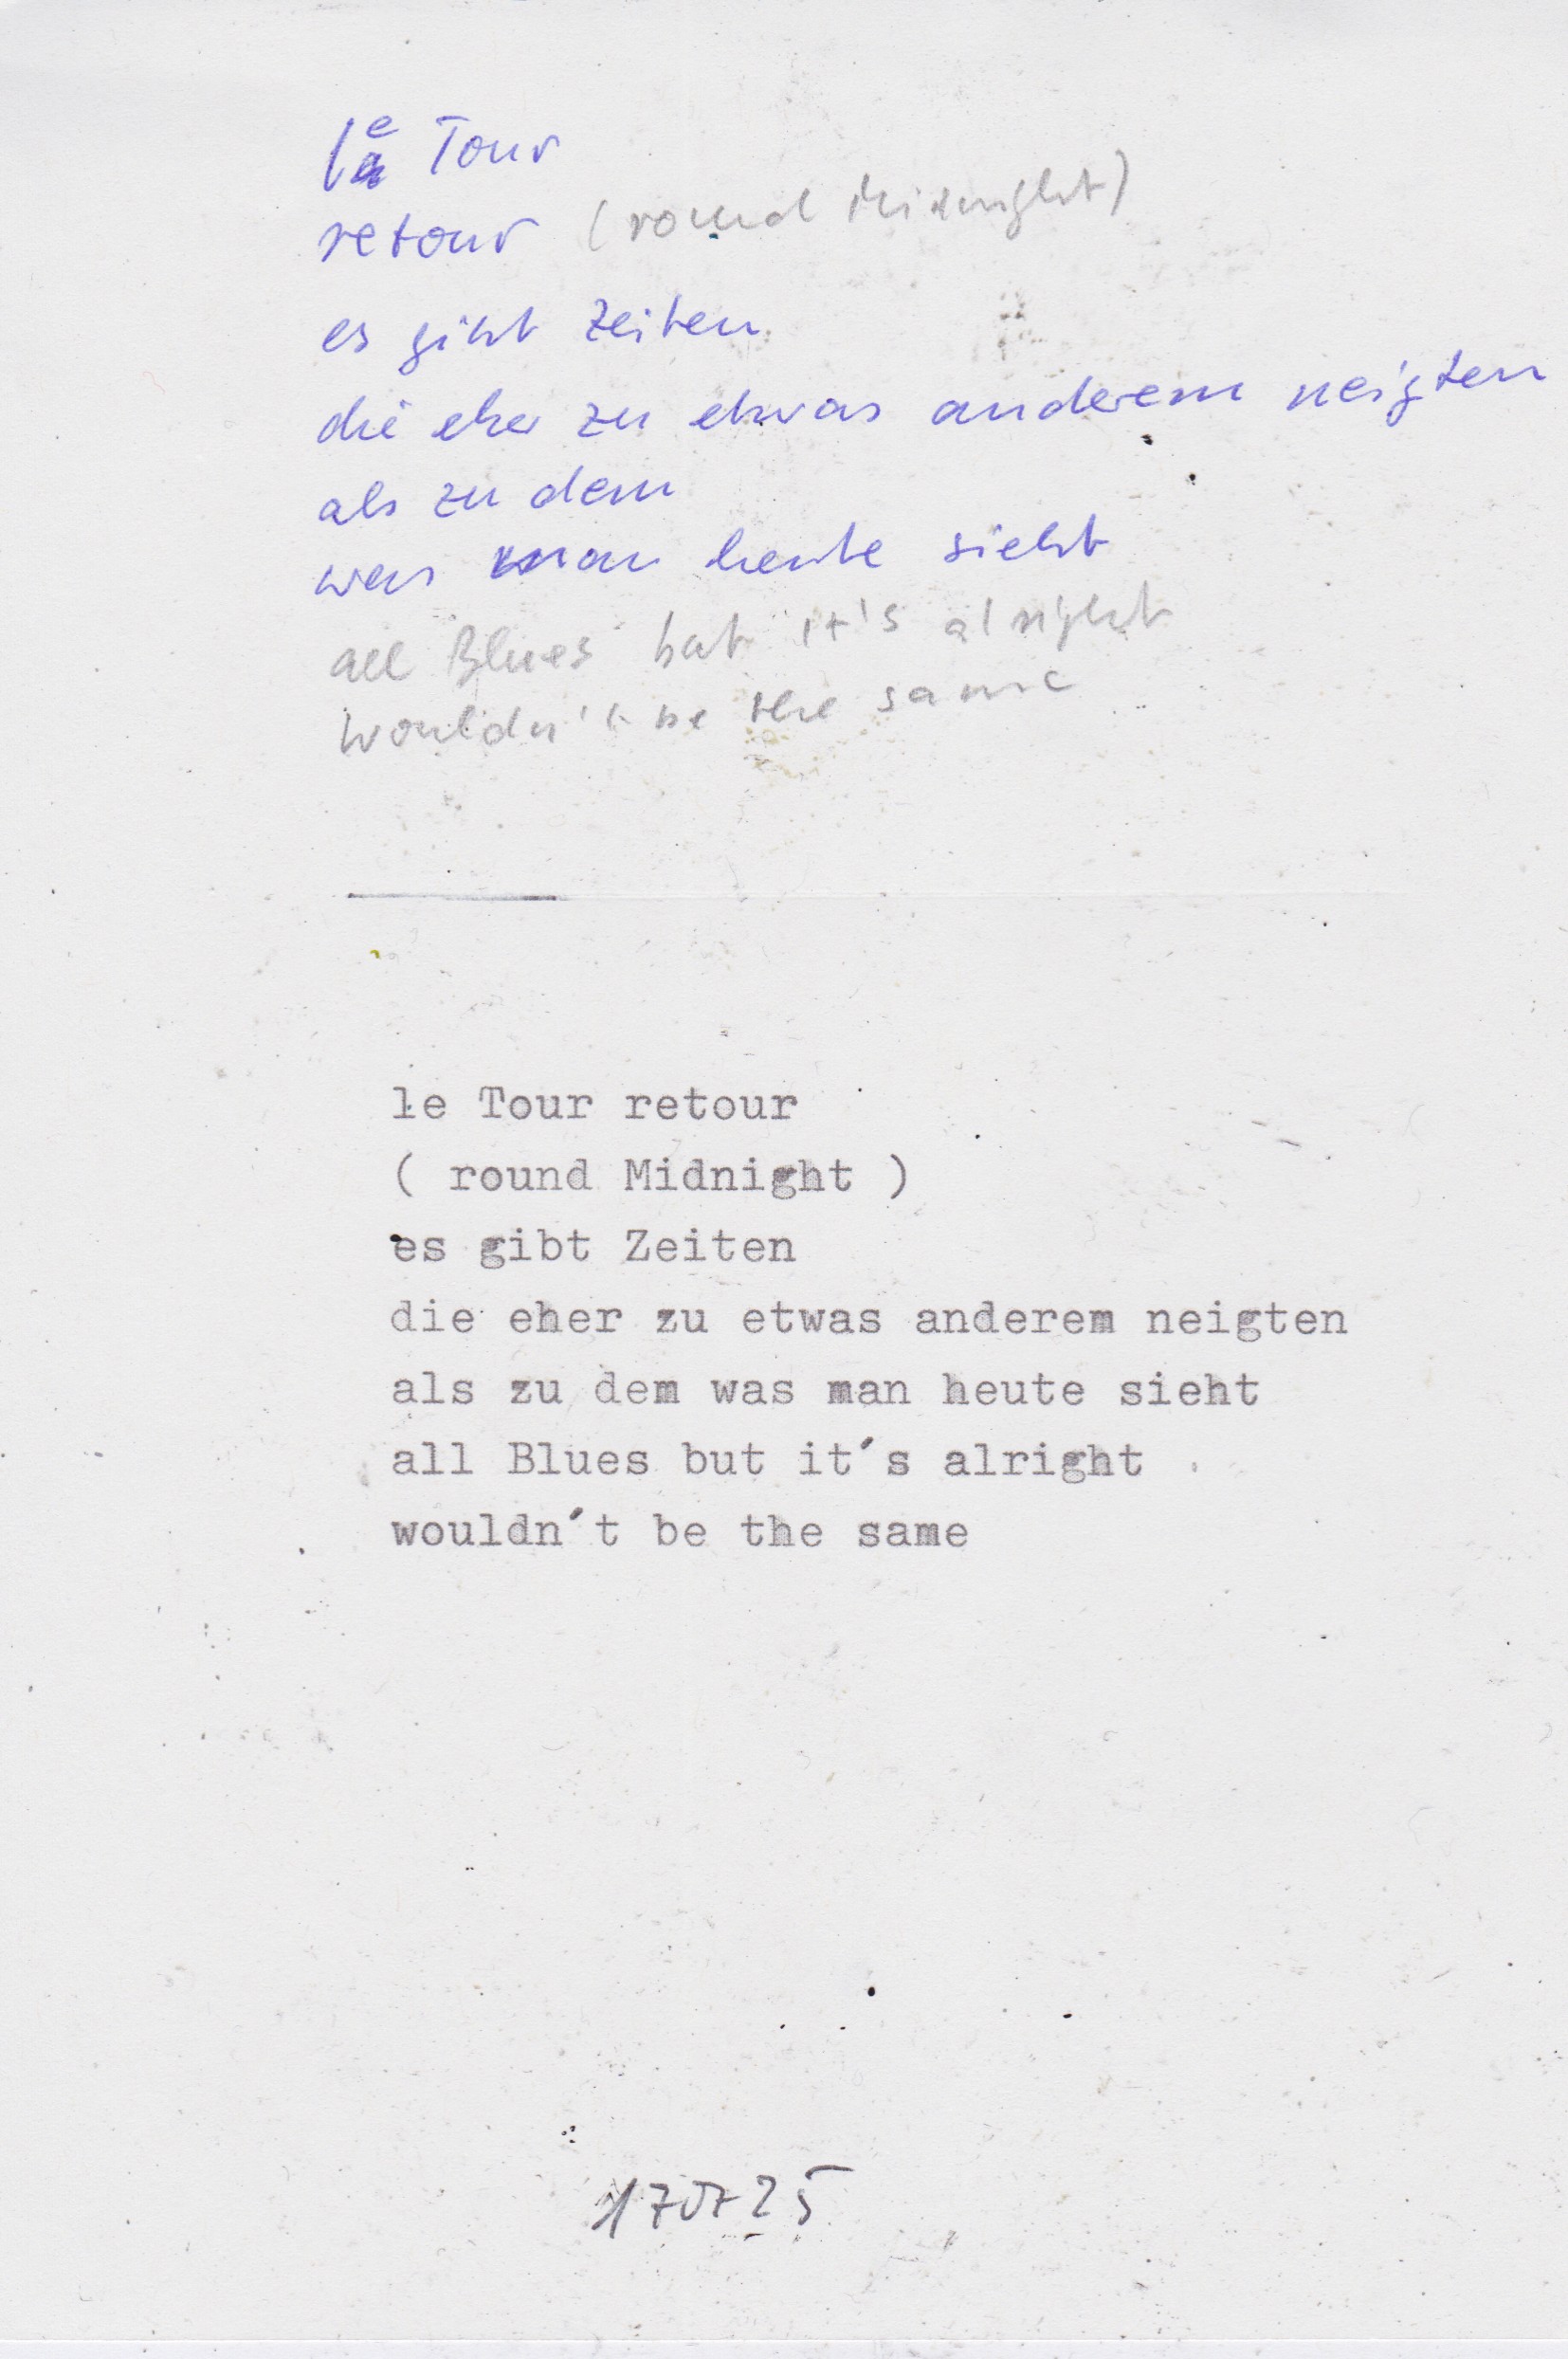 le Tour
retour (round Midnight)
es gibt Zeiten
die eher zu etwas anderem neigten
als zu dem
was man heute sieht
all Blues but it's alright
wouldn't be the same
le Tour retour
( round Midnight )
es gibt Zeiten
die eher zu etwas anderem neigten
als zu dem was man heute sieht
all Blues but it´s alright
wouldn´t be the same
170725